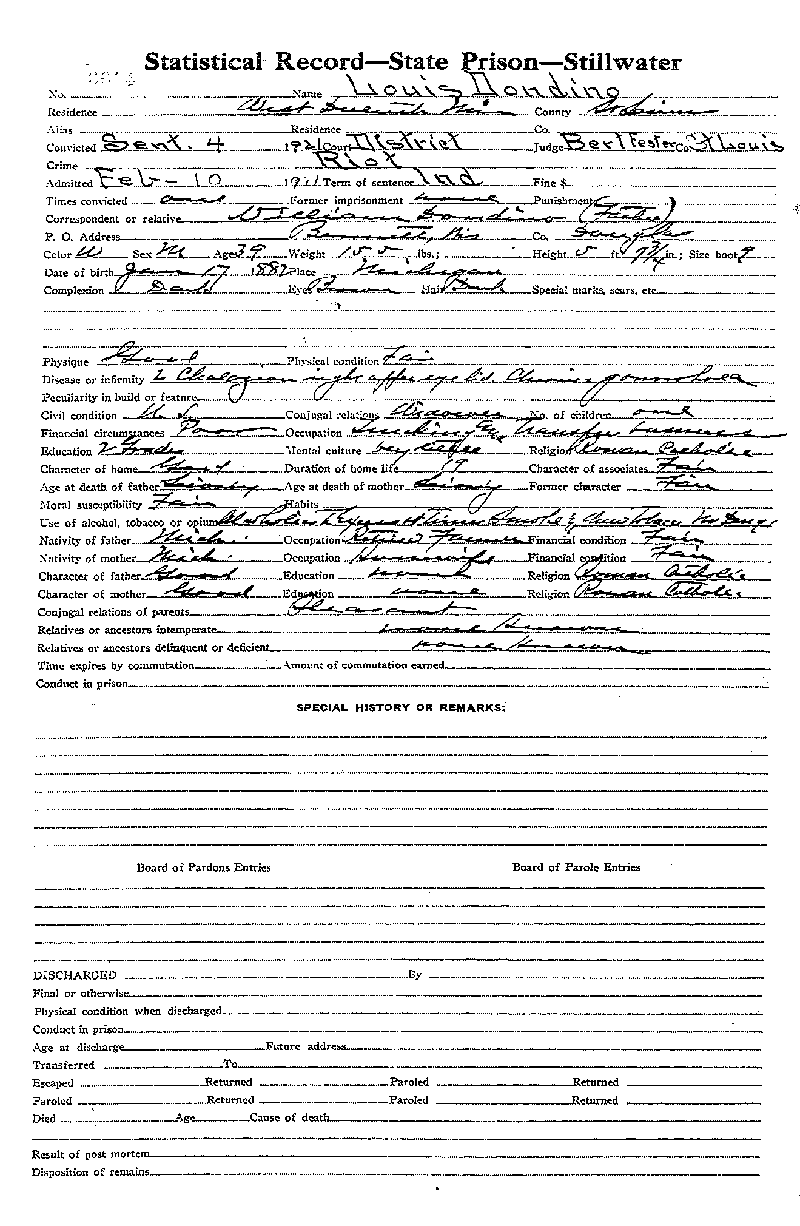 Statistical Record—State Prison—Stillwater
No. Name Louis Dondino
Residence West Duluth Minn County St Louis
Alias Residence Co.
Convicted Sept. 4 1921 Court District Judge Bert Fesler Co. St Louis
Crime Riot
Admitted Feb - 10 19 Term of sentence Ind Fine $
Times convicted one Former imprisonment none Punishment
Correspondent or relative William Dondino (Father)
P. O. Address Bennett, Wis Co. Douglas
Color W Sex M Age 39 Weight 155 lbs.; Height 5 ft. 9¾ in.; Size boot 9
Date of birth Jan 17 1882 Place Michigan
Complexion Dark Eyes Brown Hair Dark Special marks, scars, etc.
Physique Good Physical condition Fair
Disease or infirmity Chalazion right upper eye lid. Chronic gonorrhea
Peculiarity in build or feature
Civil condition Conjugal relations Divorced No. of children one
Financial circumstances Poor Occupation Trucking & Transfer business
Education Grade Mental culture Religion Roman Catholic
Character of home Good Duration of home life 19 Character of associates Fair
Age at death of father Living Age at death of mother Living Former character Fair
Moral susceptibility Fair Habits
Use of alcohol, tobacco or opium Alcoholic Liquors at Times Smokes & Chews tobacco No Drugs
Nativity of father Mich. Occupation Retired Farmer Financial condition Fair
Nativity of mother Mich. Occupation Housewife Financial condition Fair
Character of father Good Education none Religion Roman Catholic
Character of mother Good Education none Religion Roman Catholic
Conjugal relations of parents Pleasant
Relatives or ancestors intemperate none Known
Relatives or ancestors delinquent or deficient none Known
Time expires by commutation Amount of commutation earned
Conduct in prison
SPECIAL HISTORY OR REMARKS:
Board of Pardons Entries Board of Parole Entries
DISCHARGED By
Final or otherwise
Physical condition when discharged
Conduct in prison
Age at discharge Future address
Transferred To
Escaped Returned Paroled Returned
Paroled Returned Paroled Returned
Died Age Cause of death
Result of post mortem
Disposition of remains